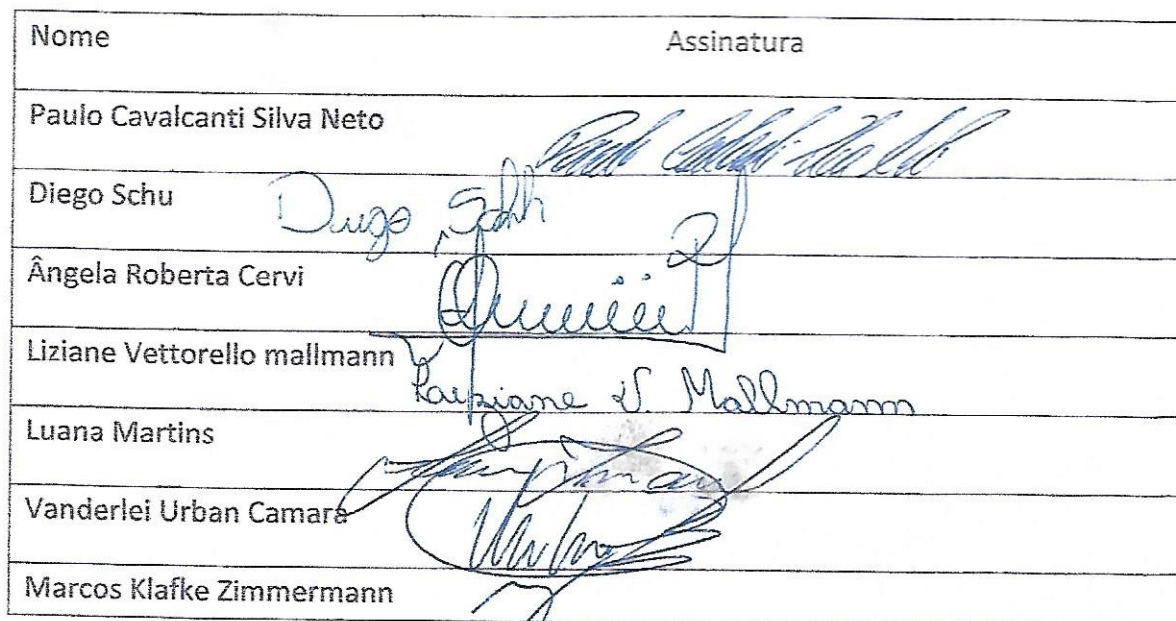 Nome Assinatura
Paulo Cavalcanti Silva Neto
Diego Schu Diego Schu
Ângela Roberta Cervi
Liziane Vettorello mallmann
V. Mallmann
Luana Martins
Vanderlei Urban Camara
Marcos Klafke Zimmermann